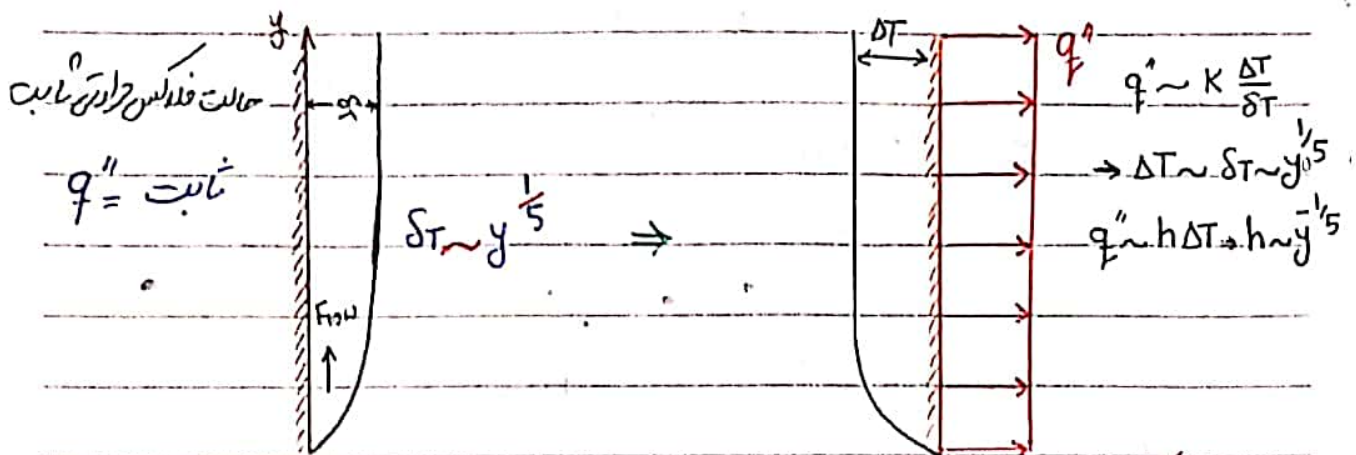 حالت فلاکس حرارتی ثابت
q'' = ثابت
y
δT
Flow
δT ~ y^1/5 ⇒
ΔT
q''
q'' ~ K ΔT/δT
→ ΔT ~ δT ~ y^1/5
q'' ~ hΔT → h ~ y^-1/5